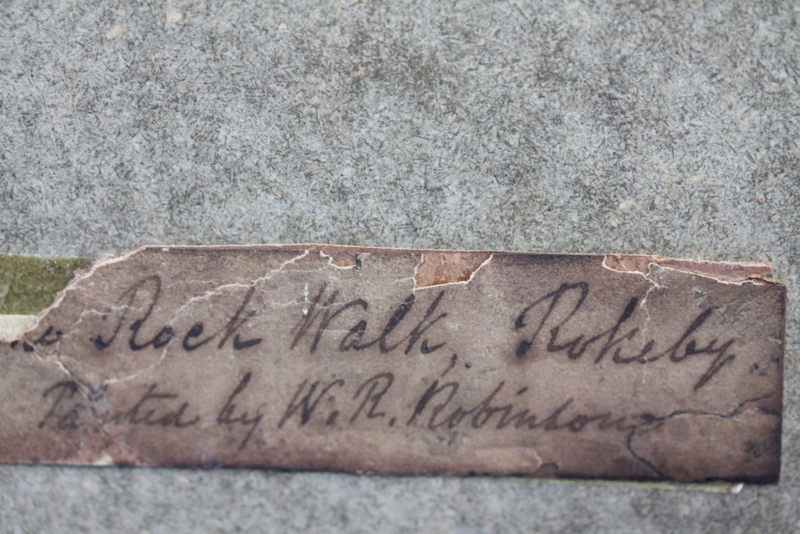 Rock Walk, Rokeby
Painted by W. R. Robinson